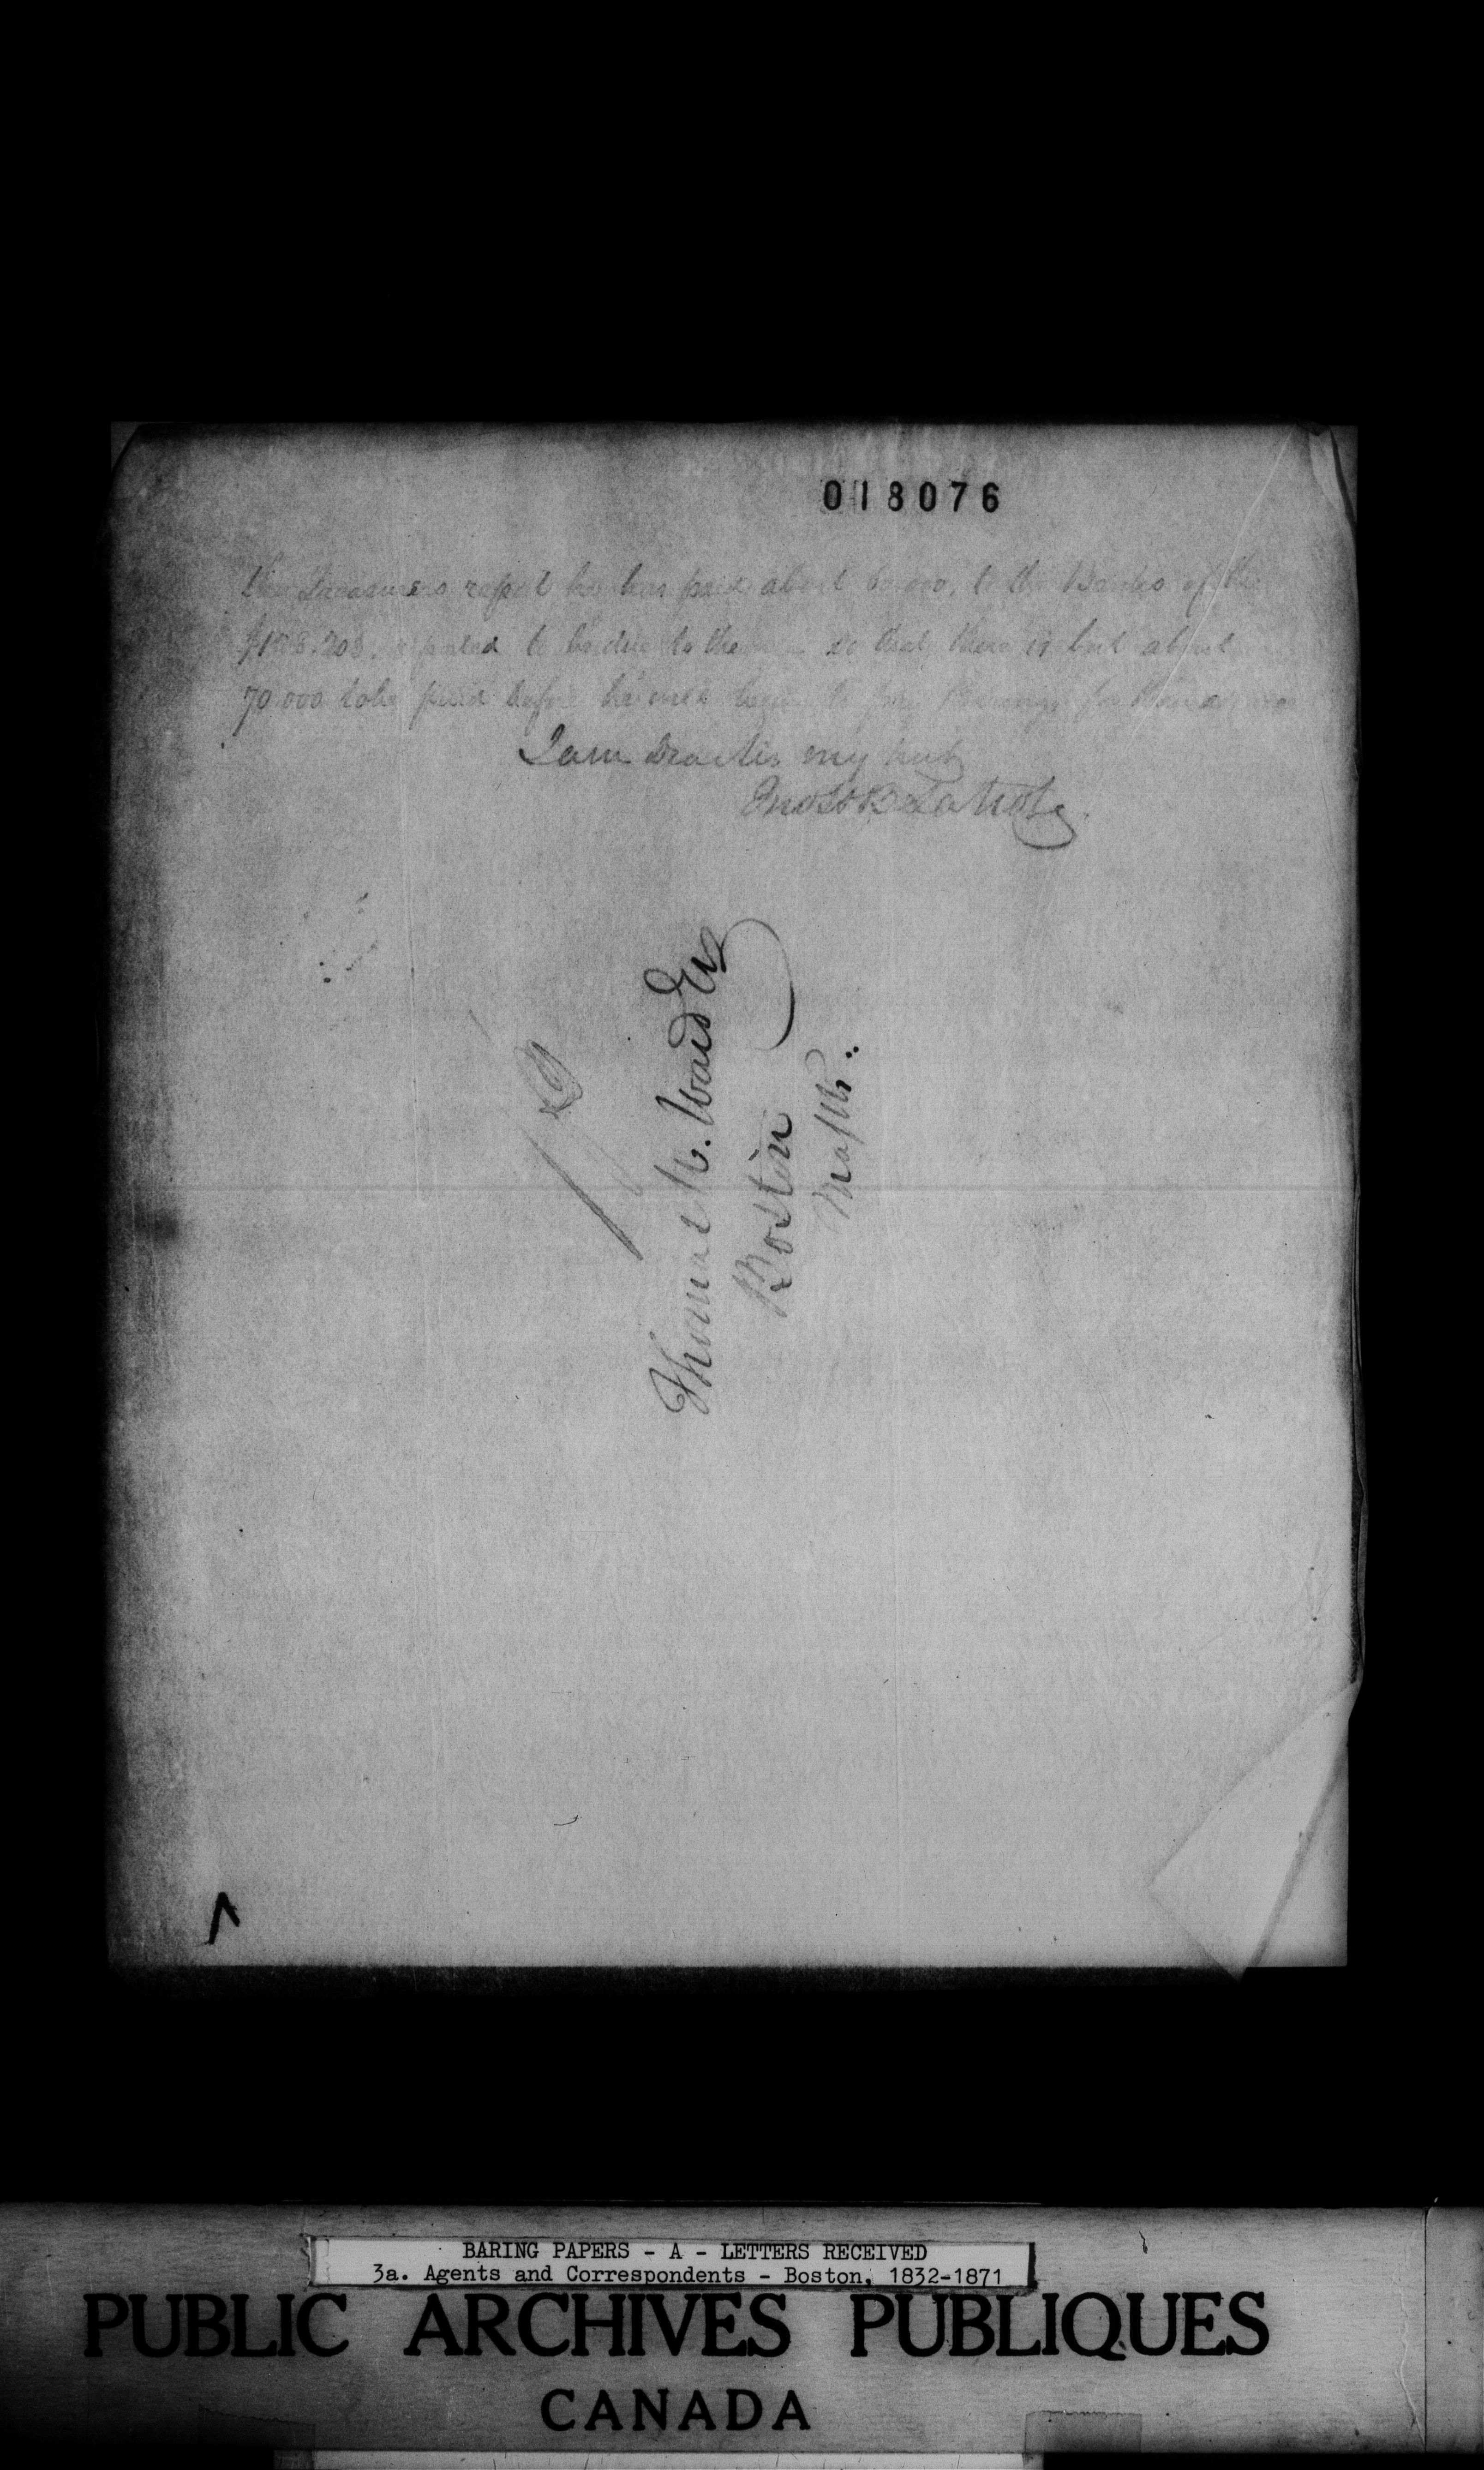 018076
the Treasurers report he has paid about 60,000, to the Banks of the
reported to be due to them so that there is but about
70,000 to be paid before he will begin to pay Barings
I am Dear Sir my
Jno H B Latrobe
Thomas W. Ward Esq
Boston
Mass.
BARING PAPERS - A - LETTERS RECEIVED
3a. Agents and Correspondents - Boston, 1832-1871
PUBLIC ARCHIVES PUBLIQUES
CANADA